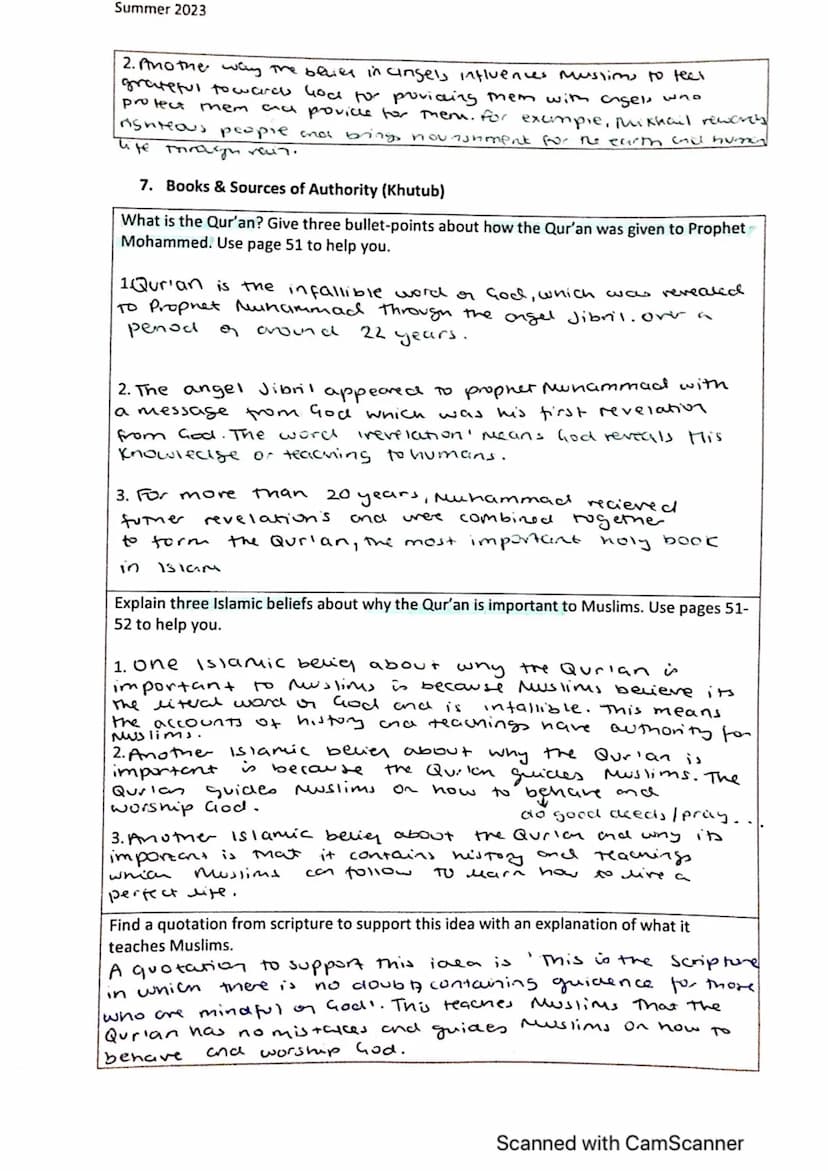 Summer 2023
2. Another way the belief in angels influences Muslims to feel
grateful towards God for providing them with angels who
protect them and provide for them. For example, Mikhail rewards
righteous people and brings nourishment for the earth and human
life through rain.
7. Books & Sources of Authority (Khutub)
What is the Qur'an? Give three bullet-points about how the Qur'an was given to Prophet
Mohammed. Use page 51 to help you.
1. Qur'an is the infallible word of God, which was revealed
to Prophet Muhammad through the angel Jibril. over a
period of around 22 years.
2. The angel Jibril appeared to prophet Muhammad with
a message from God which was his first revelation
from God. The word 'revelation' means God reveals His
knowledge or teaching to humans.
3. For more than 20 years, Muhammad recieved
futher revelations and were combined together
to form the Qur'an, the most important holy book
in Islam
Explain three Islamic beliefs about why the Qur'an is important to Muslims. Use pages 51-
52 to help you.
1. One Islamic belief about why the Qur'an is
important to Muslims is because Muslims believe its
the literal word of God and is infallible. This means
the accounts of history and teachings have authority for
Muslims.
2. Another Islamic belief about why the Qur'an is
important is because the Qur'an guides Muslims. The
Qur'an guides Muslims on how to behave and
worship God.
do good deeds/pray...
3. Another Islamic belief about the Qur'an and why its
important is that it contains history and teachings
which Muslims can follow to learn how to live a
perfect life.
Find a quotation from scripture to support this idea with an explanation of what it
teaches Muslims.
A quotation to support this idea is 'This is the Scripture
in which there is no doubt, containing guidence for those
who are mindful of God'. This teaches Muslims that the
Qur'an has no mistakes and guides Muslims on how to
behave and worship God.
Scanned with CamScanner